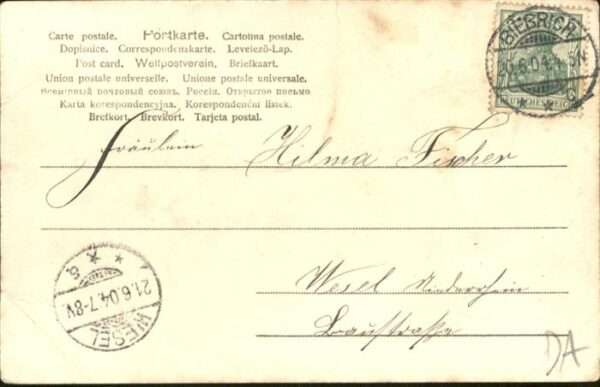 Carte postale. Postkarte. Cartolina postale.
Dopisnice. Correspondenzkarte. Levelező-Lap.
Post card. Weltpostverein. Briefkaart.
Union postale universelle. Unione postale universale.
Всемірный почтовый союзъ. Россія. Открытое письмо.
Karta korespondencyjna. Korespondenční lístek.
Brefkort. Brevkort. Tarjeta postal.
BIEBRICH
6.04
DEUTSCHES REICH
Fräulein Hilma Fischer
Wesel Niederrhein
Baustraße
WESEL
21.6.04.7-8V
DA